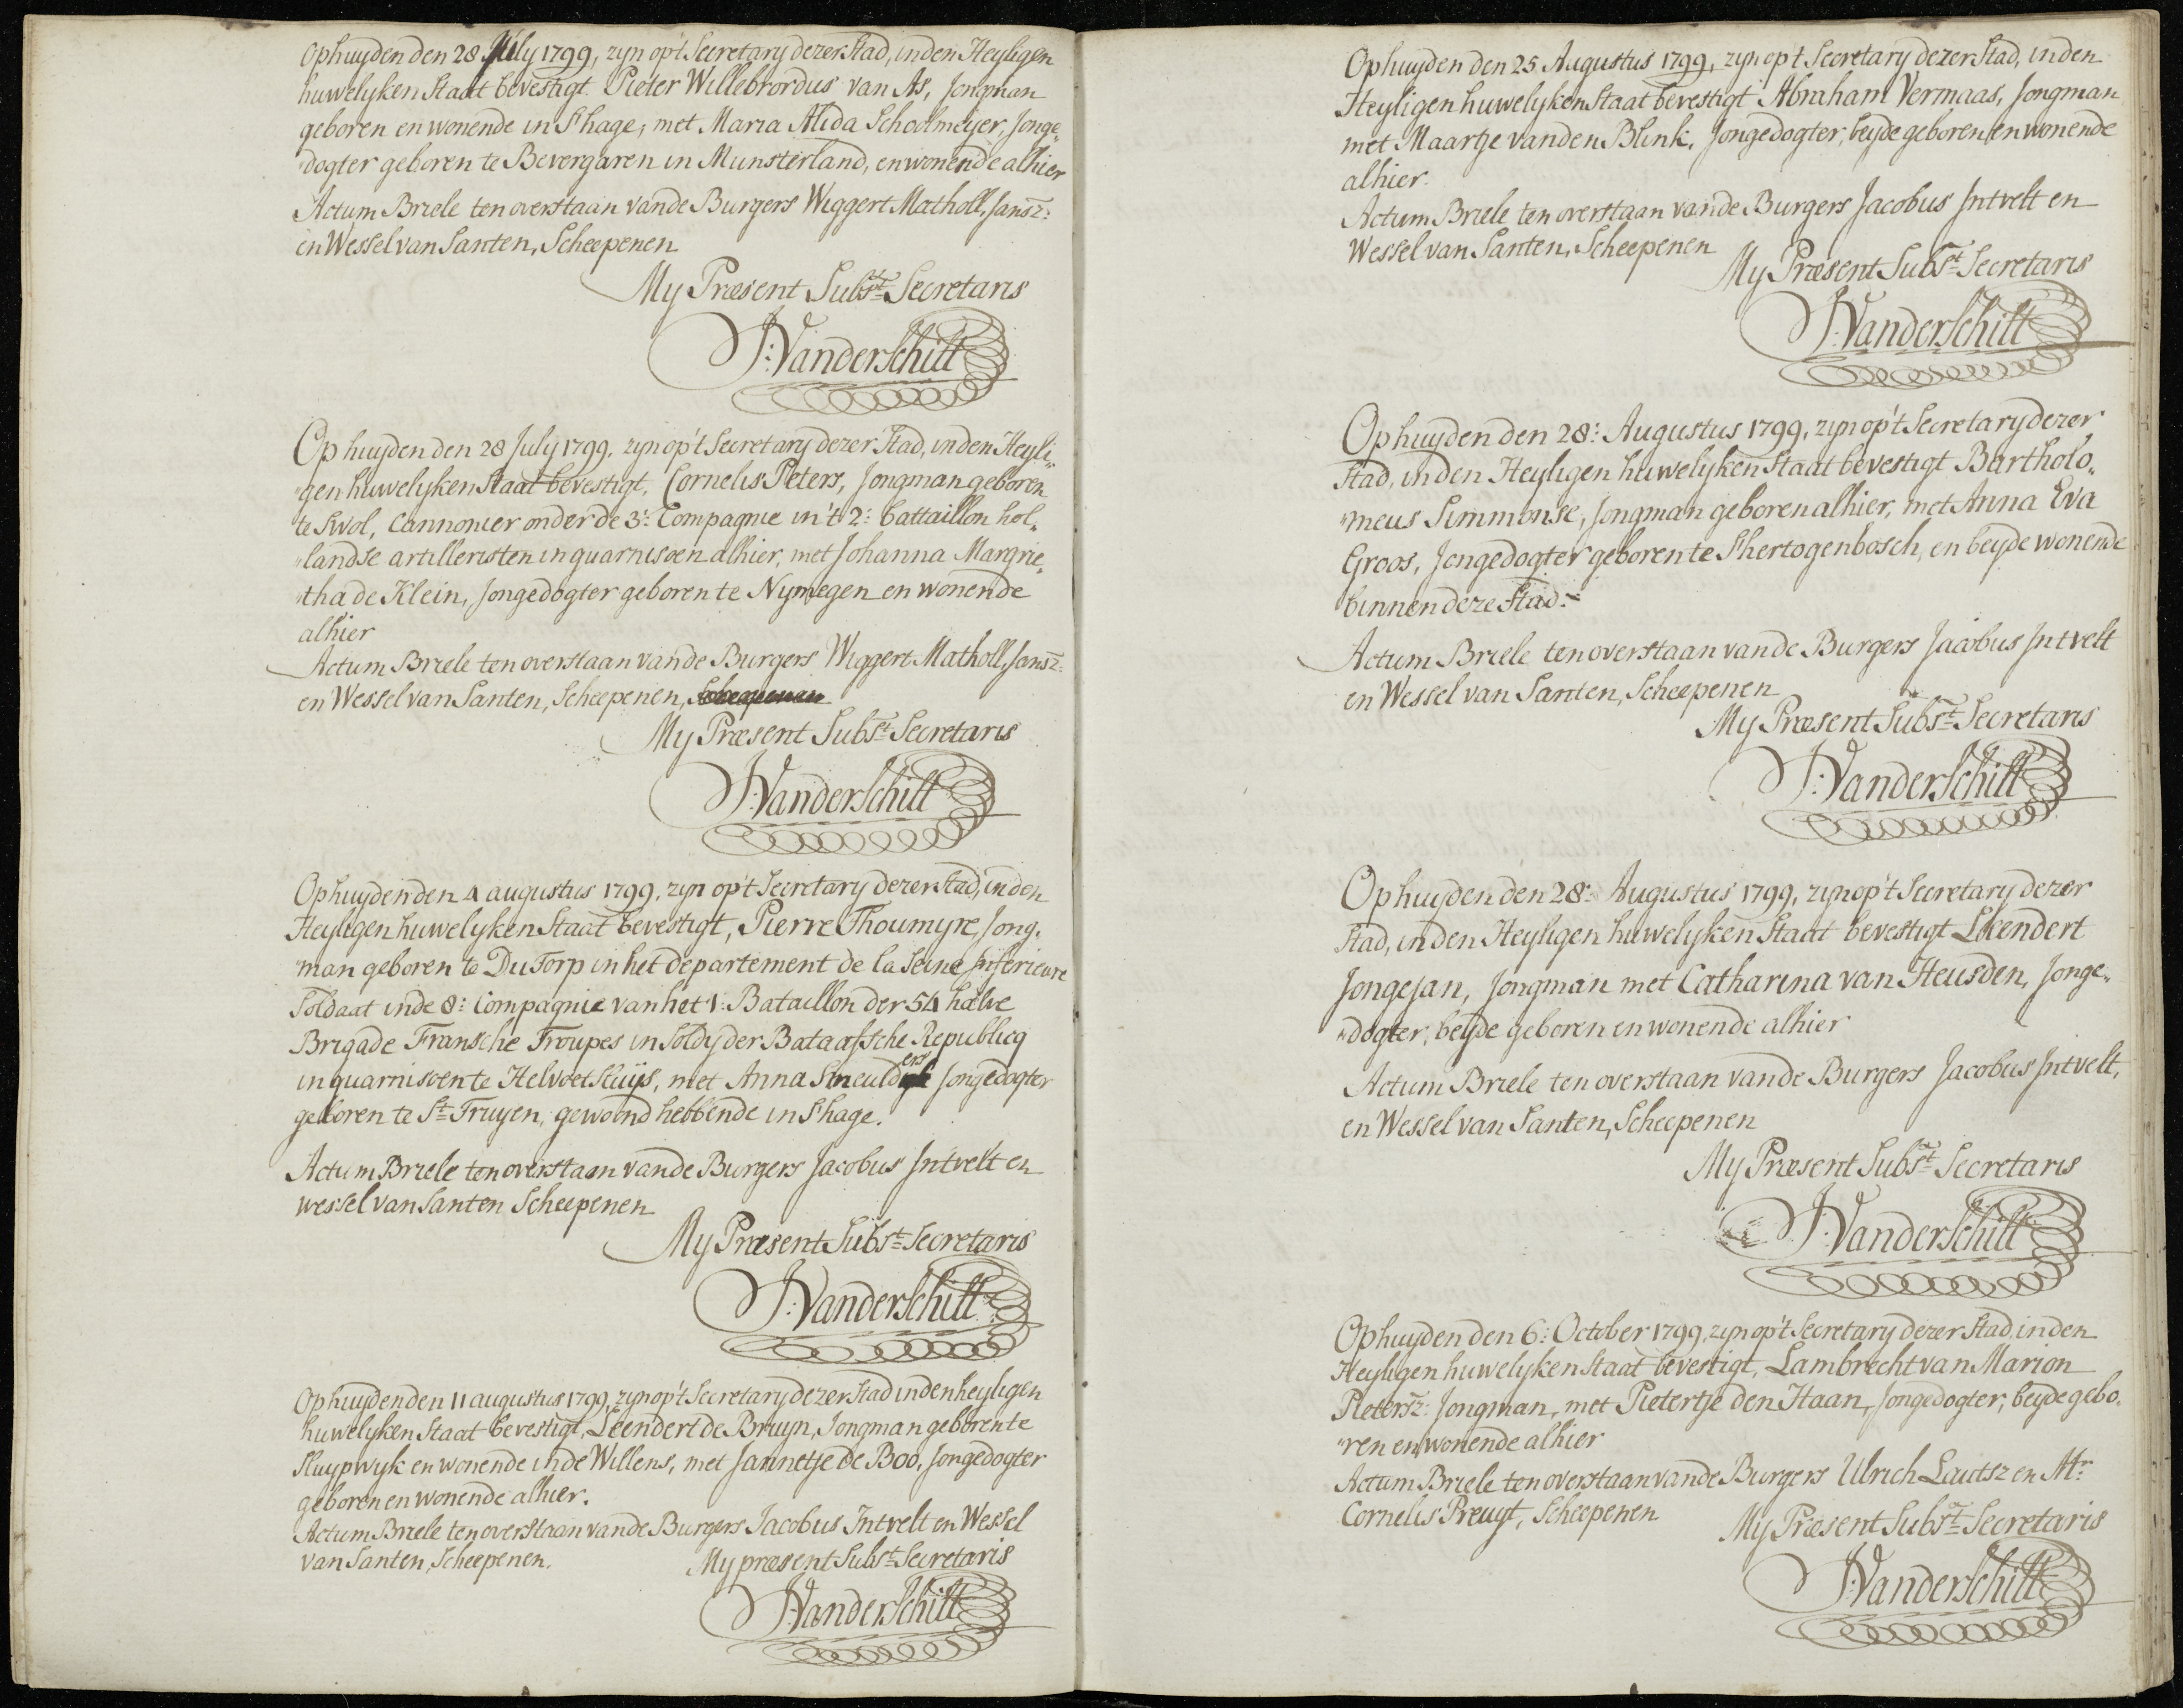 Op huyden den 28 July 1799, zyn op't Secretary dezer Stad, in den Heyligen
huwelyken Staat bevestigt Pieter Willebrordus van As, Jongman
geboren en wonende in S'hage, met Maria Alida Schoolmeyer, Jonge„
„dogter geboren te Bevergaren in Munsterland, en wonende alhier
Actum Briele ten overstaan van de Burgers Wiggert Matholl, Jansz:
en Wessel van Santen, Scheepenen
My Præsent Subst. Secretaris
J: Vanderschilt
Op huyden den 28 July 1799, zyn op't Secretary dezer Stad, in den Heyli„
„gen huwelyken Staat bevestigt, Cornelis Peters, Jongman geboren
te Swol, Cannonier onder de 3: Compagnie in't 2: battaillon hol„
„landse artilleristen in guarnisoen alhier, met Johanna Margrie„
„tha de Klein, Jongedogter geboren te Nymegen en wonende
alhier
Actum Briele ten overstaan van de Burgers Wiggert Matholl, Jansz:
en Wessel van Santen, Scheepenen, Scheepenen
My Præsent Subst. Secretaris
J: Vanderschilt
Op huyden den 4 augustus 1799, zyn op't Secretary dezer Stad, in den
Heyligen huwelyken Staat bevestigt, Pierre Thoumyre, Jong„
„man geboren te Du Torp in het departement de la Seine Inferieure
Soldaat in de 8: Compagnie van het 1: Bataillon der 54 halve
Brigade Fransche Troupes in Soldy der Bataafsche Republicq
in guarnisoen te Helvoet Sluijs, met Anna Smeulders Jongedogter
geboren te St. Truyen, gewoond hebbende in S'hage.
Actum Briele ten overstaan van de Burgers Jacobus Intvelt en
wessel van Santen Scheepenen
My Præsent Subst. Secretaris
J: Vanderschilt
Op huyden den 11 augustus 1799, zyn op't Secretary dezer Stad in den heyligen
huwelyken Staat bevestigt, Leendert de Bruyn, Jongman geboren te
Sluypwyk en wonende in de Willens, met Jannetje de Boo, Jongedogter
geboren en wonende alhier.
Actum Briele ten overstaan van de Burgers Jacobus Intvelt en Wessel
van Santen, Scheepenen.
My præsent Subst. Secretaris
J: Vanderschilt
Op huyden den 25 Augustus 1799, zyn op't Secretary dezer Stad, in den
Heyligen huwelyken Staat bevestigt Abraham Vermaas, Jongman
met Maartje van den Blink, Jongedogter, beyde geboren en wonende
alhier.
Actum Briele ten overstaan van de Burgers Jacobus Intvelt en
Wessel van Santen, Scheepenen
My Præsent Subst. Secretaris
J: Vanderschilt
Op huyden den 28: Augustus 1799, zyn op't Secretary dezer
Stad, in den Heyligen huwelyken Staat bevestigt Bartholo„
„meus Simmonse, Jongman geboren alhier, met Anna Eva
Groos, Jongedogter geboren te S'hertogenbosch, en beyde wonende
binnen deze Stad.
Actum Briele ten overstaan van de Burgers Jacobus Intvelt
en Wessel van Santen, Scheepenen
My Præsent Subst. Secretaris
J: Vanderschilt
Op huyden den 28: Augustus 1799, zyn op't Secretary dezer
Stad, in den Heyligen huwelyken Staat bevestigt Leendert
Jongejan, Jongman met Catharina van Heusden, Jonge„
„dogter, beyde geboren en wonende alhier
Actum Briele ten overstaan van de Burgers Jacobus Intvelt,
en Wessel van Santen, Scheepenen
My Præsent Subst. Secretaris
J: Vanderschilt
Op huyden den 6: October 1799, zyn op't Secretary dezer Stad, in den
Heyligen huwelyken Staat bevestigt, Lambrecht van Marion
Pietersz: Jongman, met Pietertje den Haan, Jongedogter, beyde gebo„
„ren en wonende alhier
Actum Briele ten overstaan van de Burgers Ulrich Lautsz en Mr.
Cornelis Preuyt, Scheepenen
My Præsent Subst. Secretaris
J: Vanderschilt